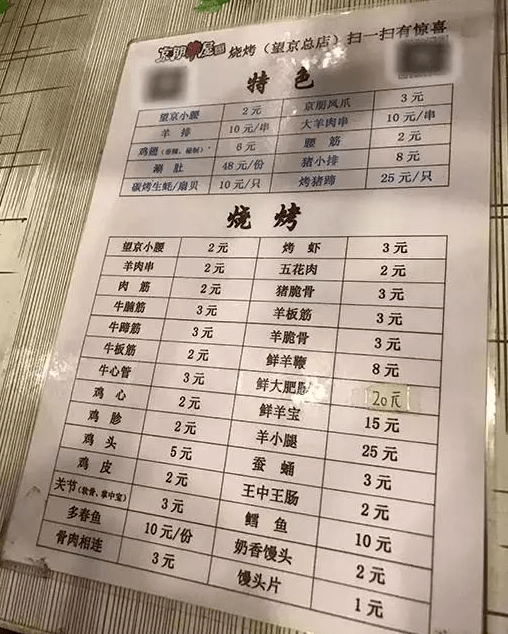 烧烤（望京总店）扫一扫有惊喜
特色
望京小腰 2元 京朋凤爪 3元
羊排 10元/串 大羊肉串 10元/串
鸡翅（香辣、秘制） 6元 腰筋 2元
涮肚 48元/份 猪小排 8元
碳烤生蚝/扇贝 10元/只 烤猪蹄 25元/只
烧烤
望京小腰 2元 烤虾 3元
羊肉串 2元 五花肉 2元
肉筋 2元 猪脆骨 3元
牛腩筋 3元 羊板筋 3元
牛蹄筋 3元 羊脆骨 3元
牛板筋 2元 鲜羊鞭 8元
牛心管 3元 鲜大肥 20元
鸡心 2元 鲜羊宝 15元
鸡胗 2元 羊小腿 25元
鸡头 5元 蚕蛹 3元
鸡皮 2元 王中王肠 2元
关节（软骨、掌中宝） 3元 鳕鱼 10元
多春鱼 10元/份 奶香馒头 2元
骨肉相连 3元 馒头片 1元